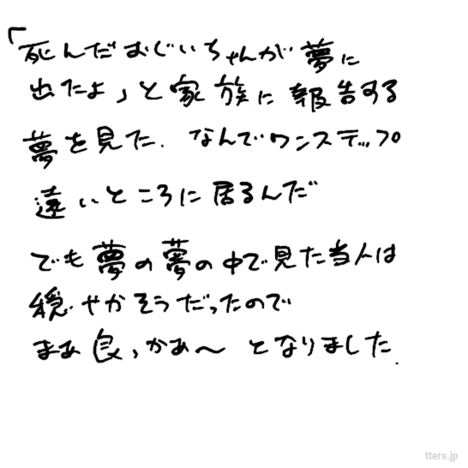 「死んだおじいちゃんが夢に
出たよ」と家族に報告する
夢を見た. なんでワンステップ
遠いところに居るんだ
でも夢の夢の中で見た当人は
穏やかそうだったので
まあ良っかあ〜 となりました.
tters.jp